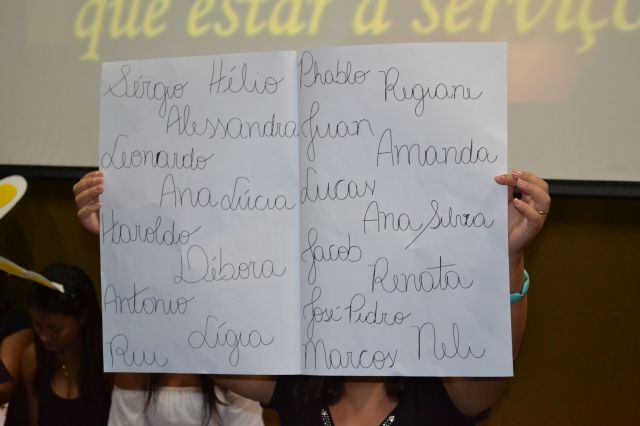 que estar a serviço
Sérgio Hélio Phablo Regiane
Alessandra Juan Amanda
Leonardo
Ana Lúcia Lucas Ana Silvia
Haroldo
Débora Jacob Renata
Antonio José Pedro
Rui Lígia Marcos Neli